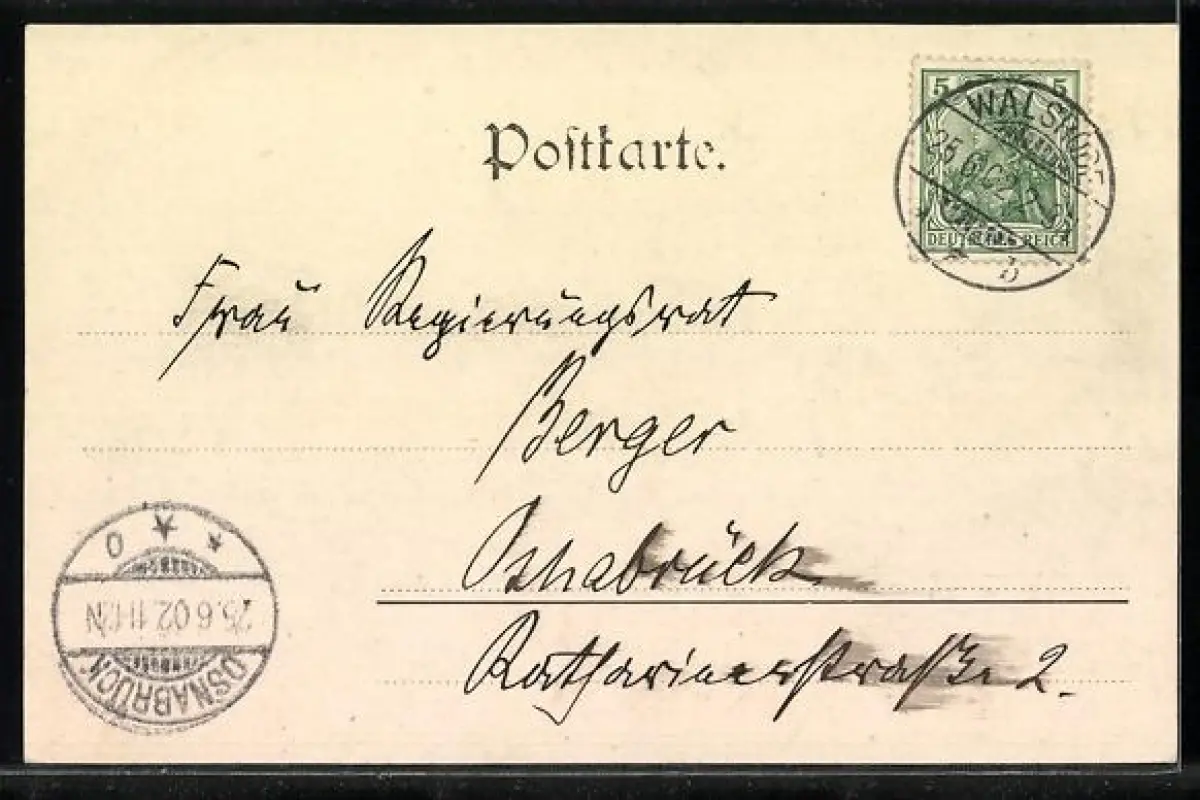 Postkarte.
5 5
DEUTSCHES REICH
WALSRODE
25.6.02
b
Frau Regierungsrat
Berger
Osnabrück
Katharinenstraße 2.
OSNABRÜCK
25.6.02 11-12N